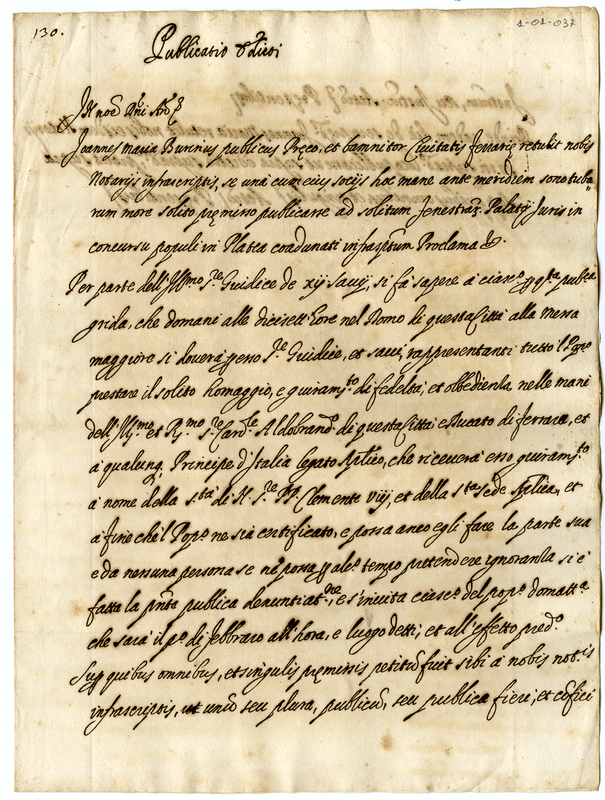 130.
1-01-037
Publicatio
In noē Dni
Joannes Maria publicus Pręco, et bannitor Civitatis ferrarię retulit nobis
Notarijs infrascriptis, se una cum eius socijs hoc mane ante meridiem sono tuba
rum more solito pręmisso publicasse ad solitum fenestrā Palatij Juris in
concursu populi in Platea coadunati infrascptum Proclama
Per parte dell'Ill.mo S.re Guidice de xij savij, si fà sapere à ciasc.o p q.ta publica
grida, che domani alle dicisett'hore nel Domo di questa Città alla messa
maggiore si doverà p esso S.re Guidice, et savij rappresentanti tutto'l Popo
prestare il solito homaggio, e giuram.to di fedeltà, et obbedienza nelle mani
dell'Ill.mo et R.mo S.re Card.le Aldobrand.o di questa Città e Ducato di ferrara, et
à qualunq. Principe d'Italia legato Aplīco, che riceverà esso giuram.to
à nome della S.tà di N. S.re PP. Clemente viij, et della S.ta Sede Aplīca, et
à fine che'l Pop.o ne sia certificato, e possa anco egli fare la parte sua
e da nessuna persona se nè possa p alc.o tempo pretendere ignoranza si è
fatta la pnta publica denuntiat.ne, e s'invita ciasc.o del pop.o domatt.a
che sarà il p.o di febbraro all'hora, e luogo detti, et all'effetto pred.o
Sup quibus omnibus, et singulis pręmissis petitū fuit sibi à nobis not.is
infrascriptis, ut unū seu plura, publicū, seu publica fieri, et cōfici